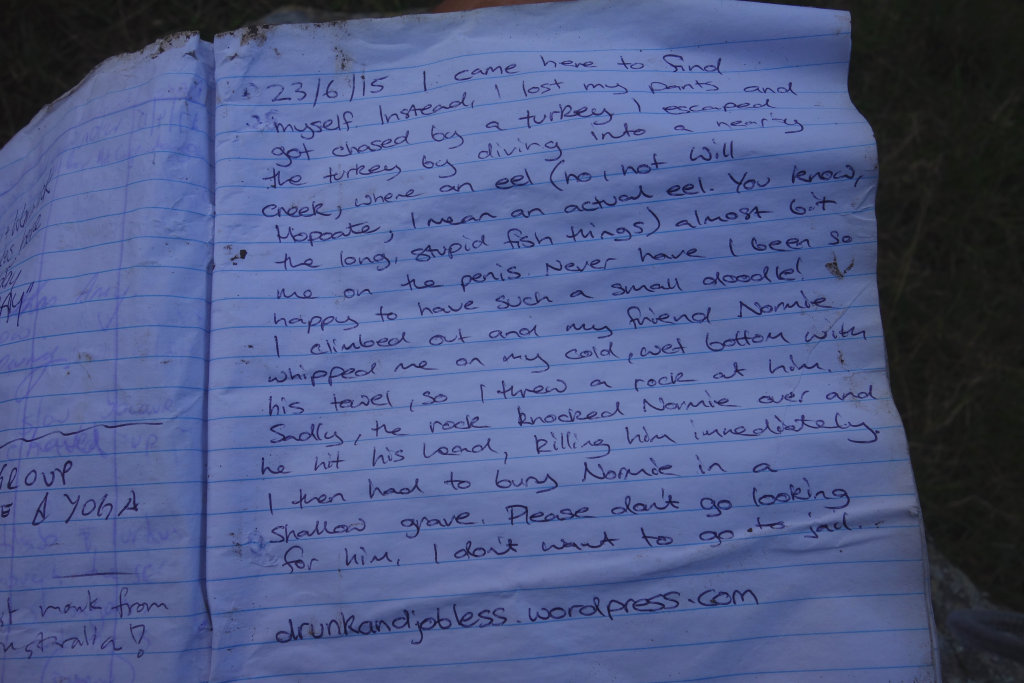 AY"
GROUP
& YOGA
monk from
Australia!
23/6/15 I came here to find
myself. Instead, I lost my pants and
got chased by a turkey. I escaped
the turkey by diving into a nearby
creek, where an eel (no, not Will
Hopoate, I mean an actual eel. You know,
the long, stupid fish things) almost bit
me on the penis. Never have I been so
happy to have such a small doodle!
I climbed out and my friend Normie
whipped me on my cold, wet bottom with
his towel, so I threw a rock at him.
Sadly, the rock knocked Normie over and
he hit his head, killing him immediately.
I then had to bury Normie in a
shallow grave. Please don't go looking
for him, I don't want to go to jail...
drunkandjobless.wordpress.com